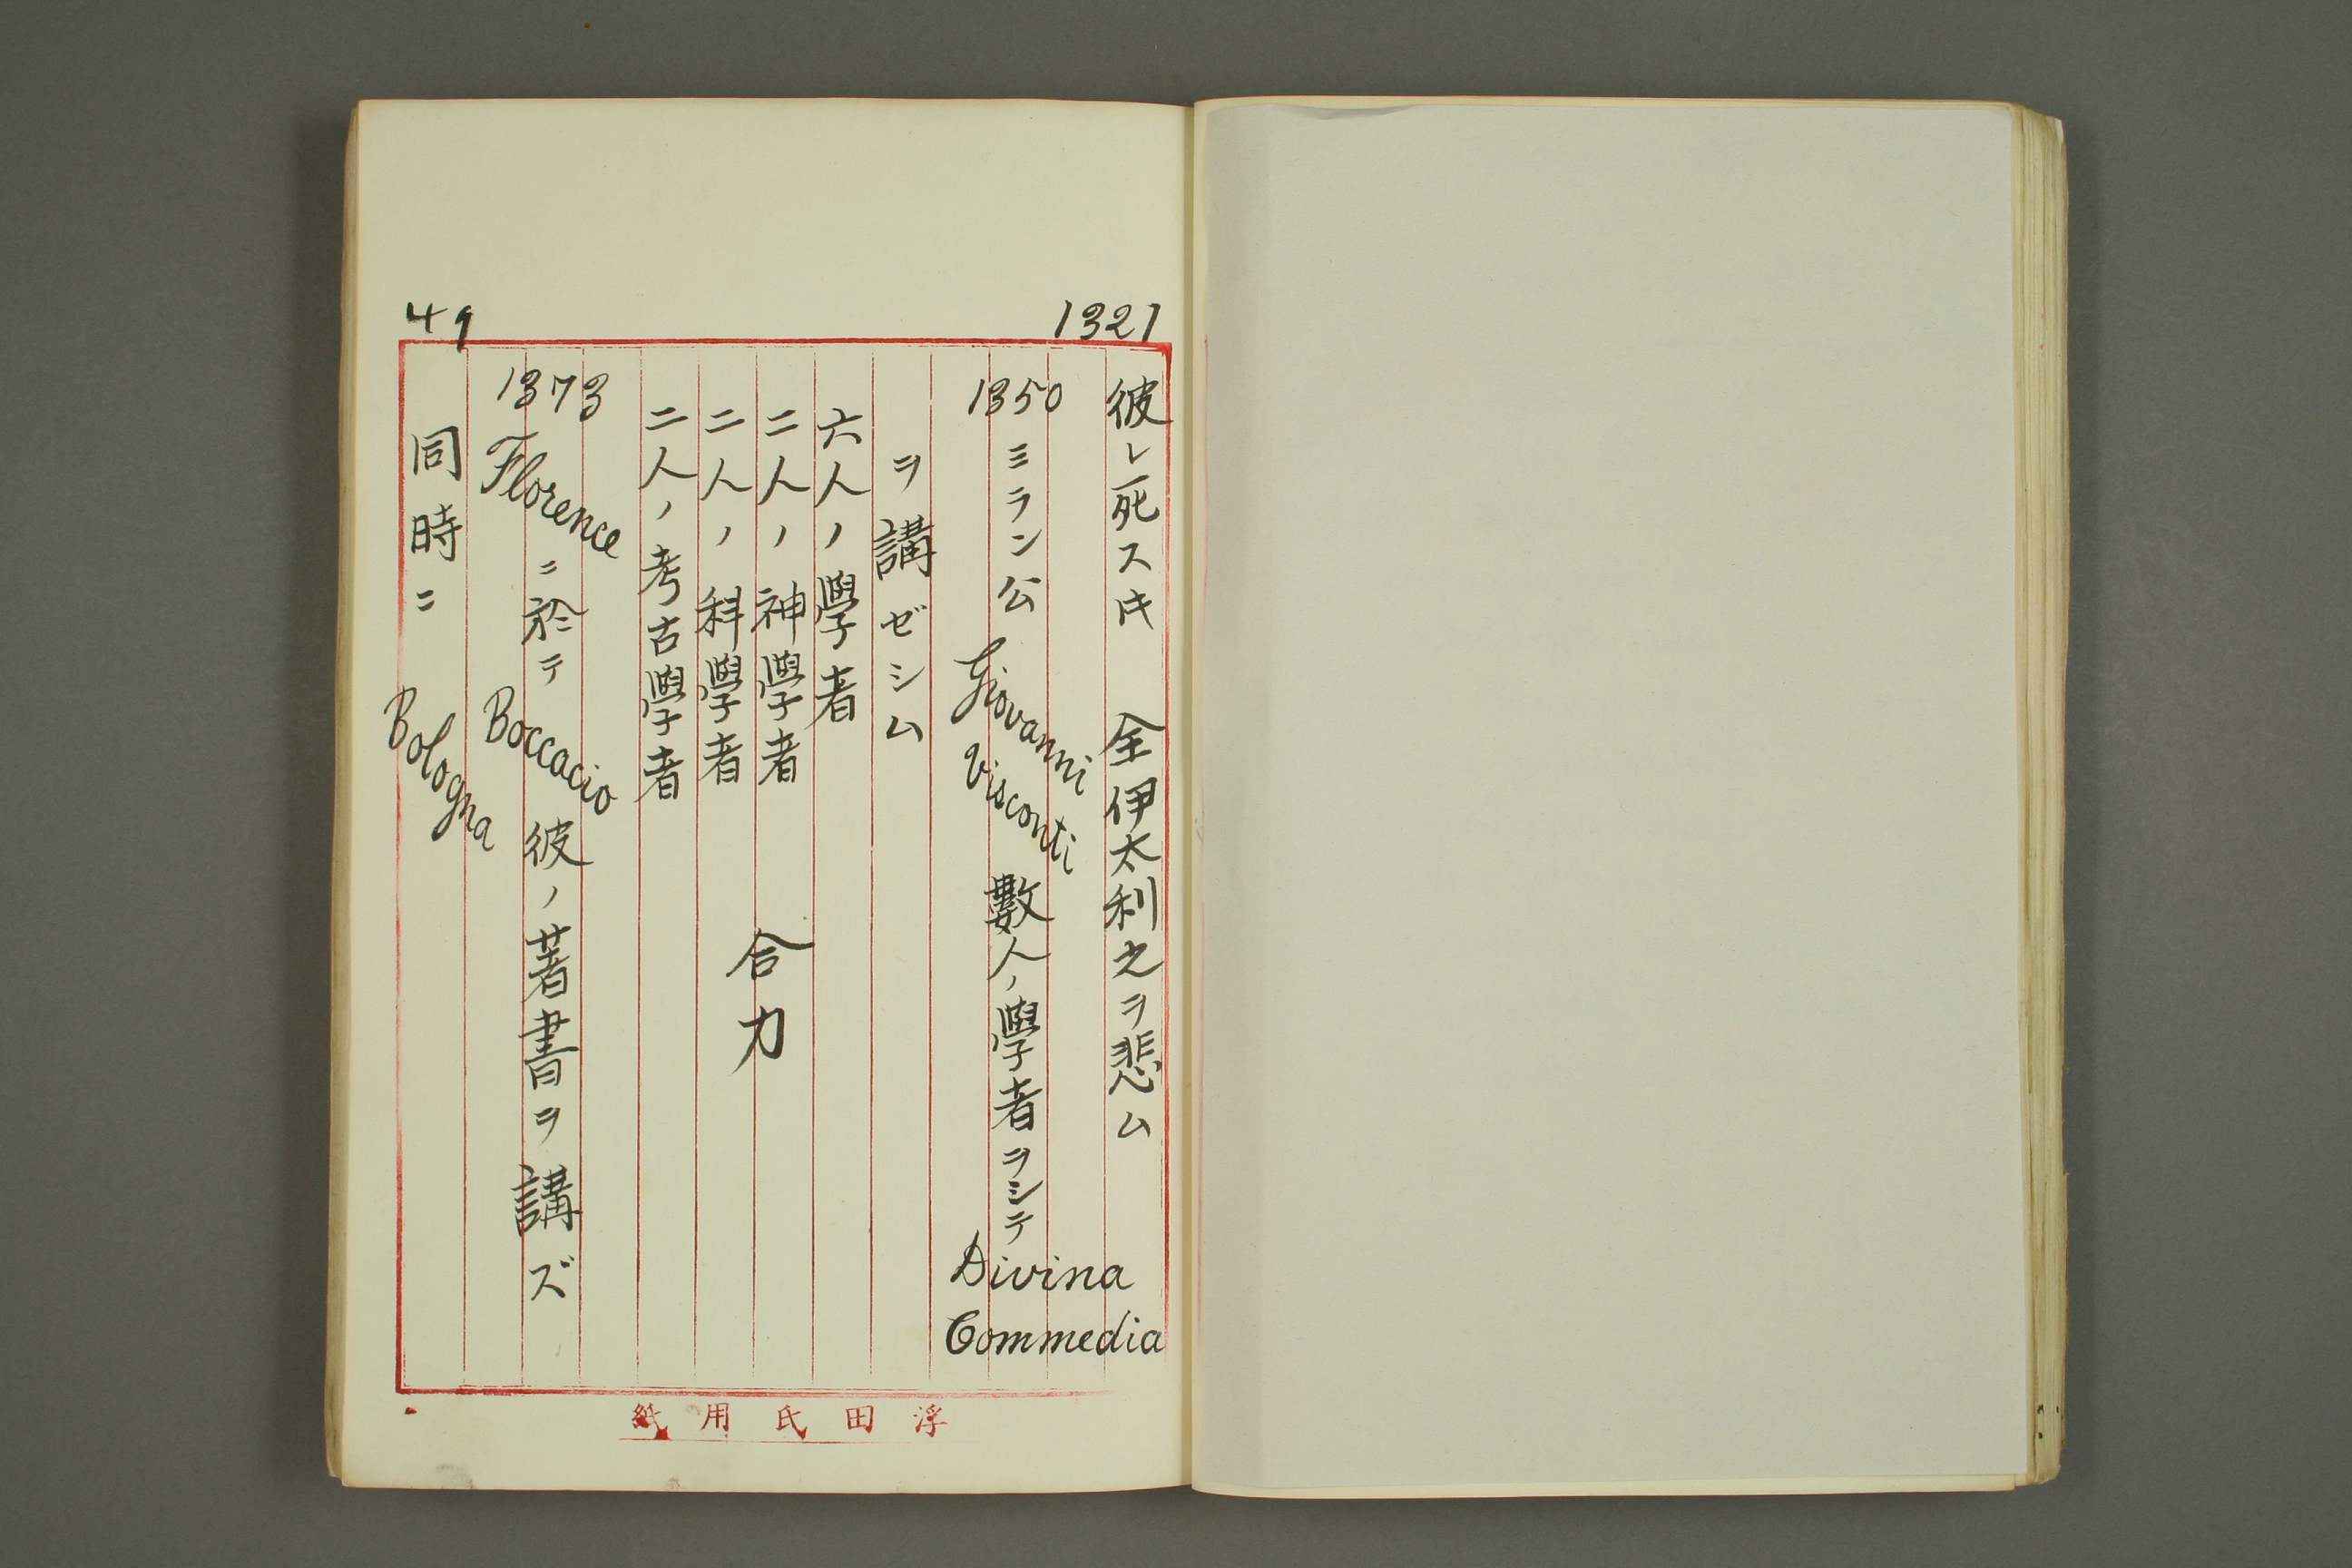 1321
彼レ死スㇳキ 全伊太利之ヲ悲ム
1350 ミラン公 Giovanni Visconti 數人ノ學者ヲシテ Divina Commedia
ヲ講ゼシム
六人ノ學者
二人ノ神學者
二人ノ科學者
二人ノ考古學者
合力
1373 Florence ニ於テ Boccacio 彼ノ著書ヲ講ズ
同時ニ Bologna
49
浮田氏用紙